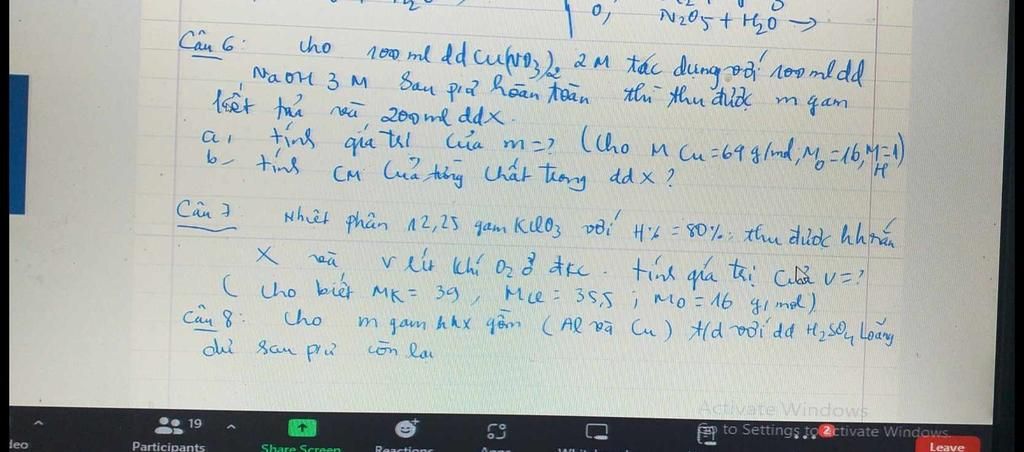 O₂ N₂O₅ + H₂O →
Câu 6: Cho 100 ml dd Cu(NO₃)₂ 2M tác dụng với 100 ml dd
NaOH 3M sau pư hoàn toàn thì thu được m gam
kết tủa và 200 ml ddX.
a, tính giá trị của m=? (Cho M Cu=64 g/mol, M O=16, M H=1)
b- tính CM của từng chất trong dd X?
Câu 7 Nhiệt phân 12,25 gam KClO₃ với H% = 80%; thu được hh rắn
X và V lít khí O₂ ở đkc. tính giá trị của V=?
( Cho biết MK = 39, MCl = 35,5; MO = 16 g/mol)
Câu 8: Cho m gam hhx gồm (Al và Cu) t/d với dd H₂SO₄ loãng
dư sau pư còn lại
Activate Windows
Go to Settings to activate Windows.
19
2
deo Participants Share Screen Reactions Apps Leave